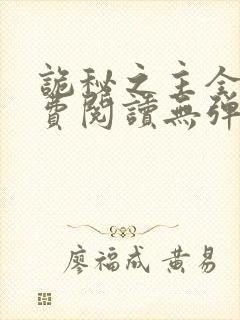 詭秘之主全
費閱讀無彈
廖福成 黃易